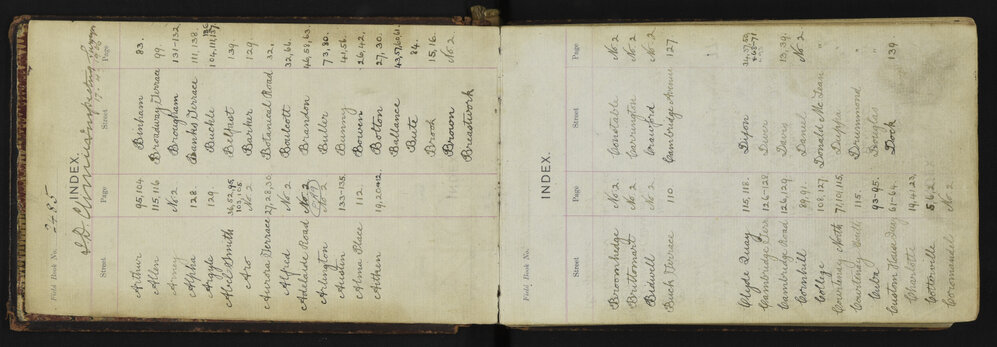 Field Book No. 2-25
INDEX.
Street Page Street Page
Arthur 95, 104. Bingham 83.
Allen 115, 116 Broadway Terrace 99.
Army No 2 Brougham 131-132
Alpha 128 Banks Terrace 111, 138.
Argyle 129 Buckle 104, 111, 137.
Abel Smith 36, 52, 95 103, 105 Belfast 139
Aro No 2 Barker 129
Aurora Terrace 27, 28, 30 Botanical Road 32.
Alfred No 2 Boulcott 32, 66.
Adelaide Road No. 2 Brandon 46, 58, 63.
Arlington No 2 Buller 73, 80.
Austin 133-135. Bunny 41, 56.
Alma Place 112 Bowen 26, 42.
Aitken 19, 20 Bolton 27, 30.
Ballance 43, 57, 60, 61
Bute 84.
Brock 15, 16.
Brown No 2
Breastwork
Field Book No.
INDEX.
Street Page Street Page
Bromhidge No 2 Constable No 2
Brittomart No 2 Carrington No 2
Bidwell No 2 Crawford No 2
Buck Terrace 110 Cambridge Avenue 127
Clyde Quay 115, 118. Dixon
Cambridge Terr 126-128. Duver
Cambridge Road 126, 129 Davis 13, 39.
Cornhill 89, 91. Daniel No 2
College 108, 127 Donald McLean "
Courtenay North 7, 101, 115. Duppa "
Courtenay 115 Drummond "
Cuba 93-95. Douglas "
Custom House Quay 61-64. Dock 139
Charlotte 19, 41, 23,
Cottonville 5, 6, 2,
Coromandel No 2